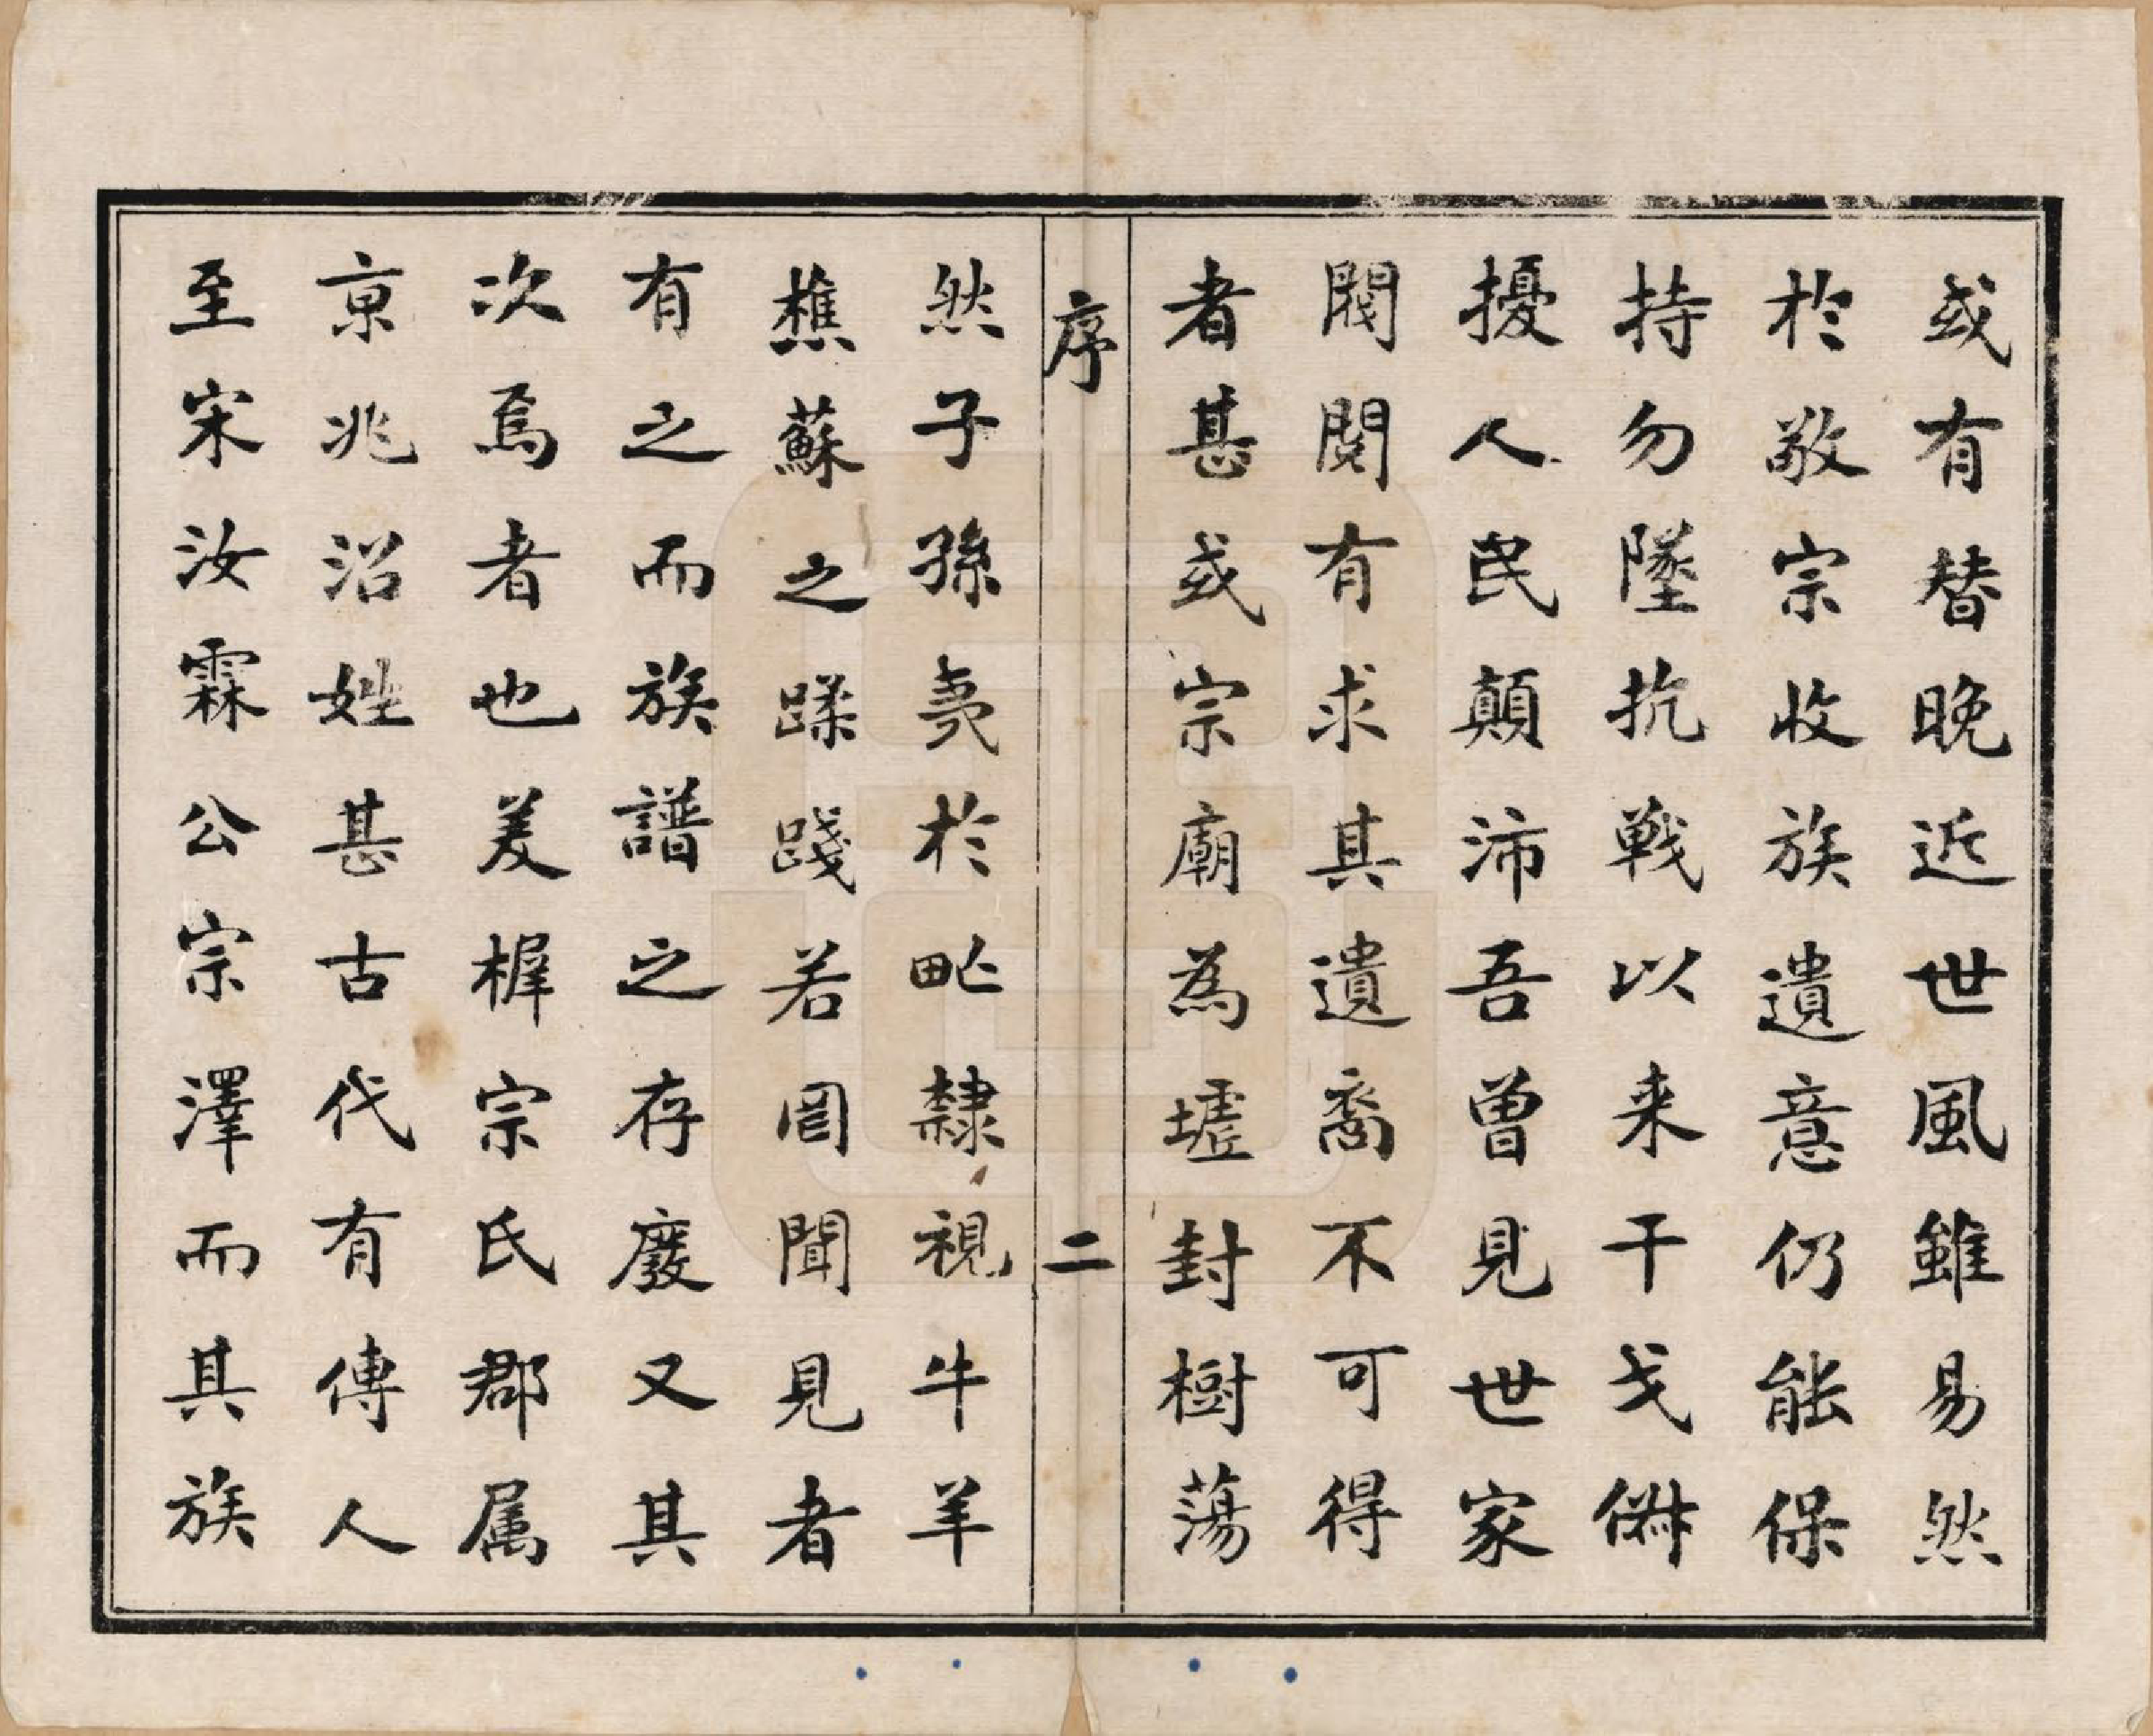 或有替晚近世風雖易然
於敬宗收族遺意仍能保
持勿墜抗戰以来干戈俶
擾人民顛沛吾曾見世家
閥閱有求其遺裔不可得
者甚或宗廟為墟封樹蕩
序
二
然子孫夷於甿隸視牛羊
樵蘇之蹂踐若罔聞見者
有之而族譜之存廢又其
次焉者也美樨宗氏郡属
京兆沿姓甚古代有傳人
至宋汝霖公宗澤而其族